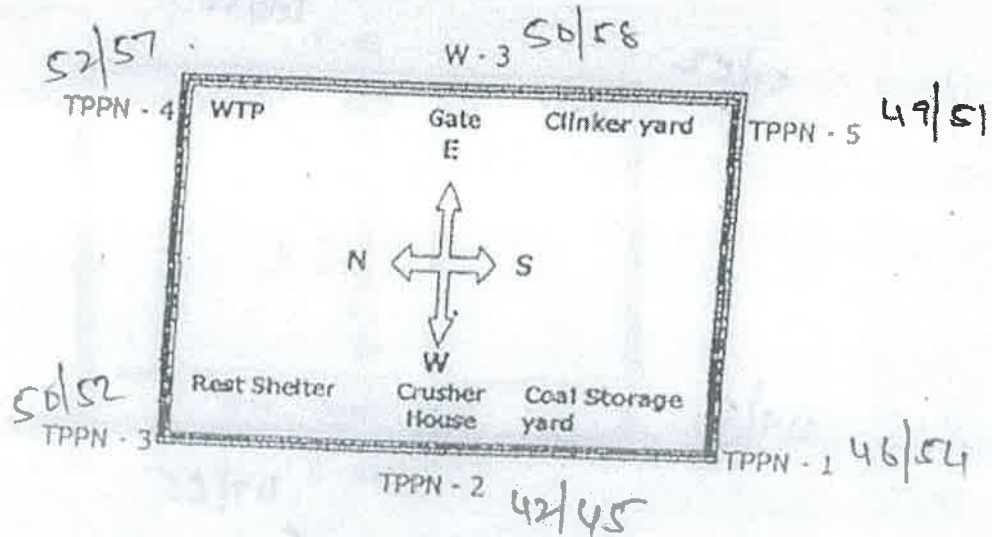 52/57
W - 3 50/58
TPPN - 4
WTP
Gate
Clinker yard
TPPN - 5 49/51
E
N
S
W
Rest Shelter
Crusher House
Coal Storage yard
50/52
TPPN - 3
TPPN - 1 46/54
TPPN - 2 42/45